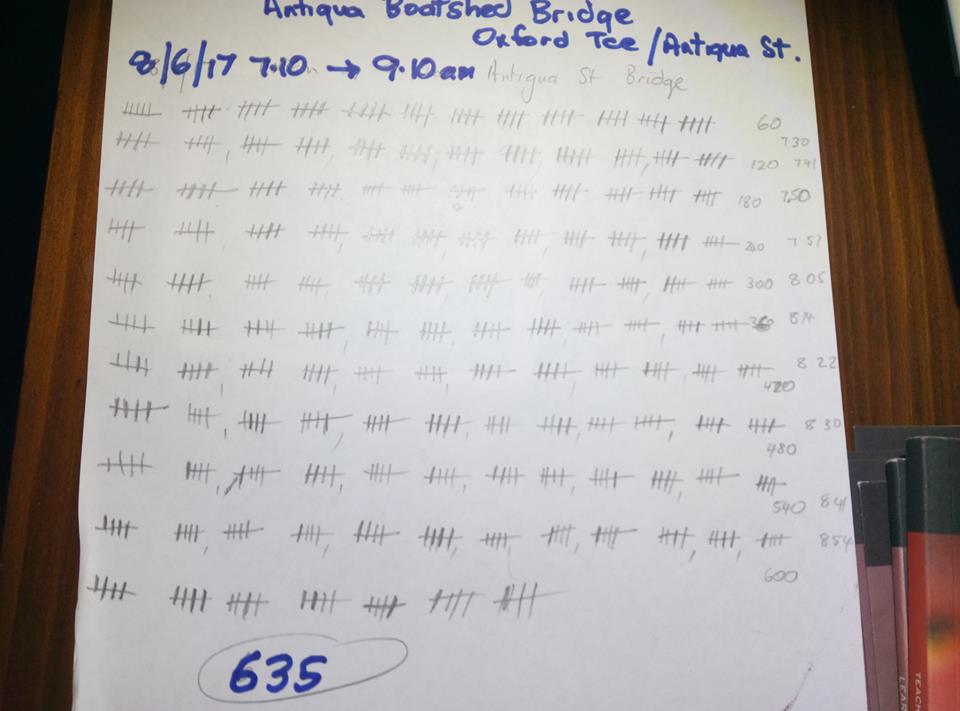 Antigua Boatshed Bridge
Oxford Tce / Antigua St.
8/6/17 7.10 → 9.10am Antigua St Bridge
60
730
120 741
180 7.50
240 757
300 8 05
360 814
8 22
420
8 30
480
540 841
854
600
635
TEACH
LEAR